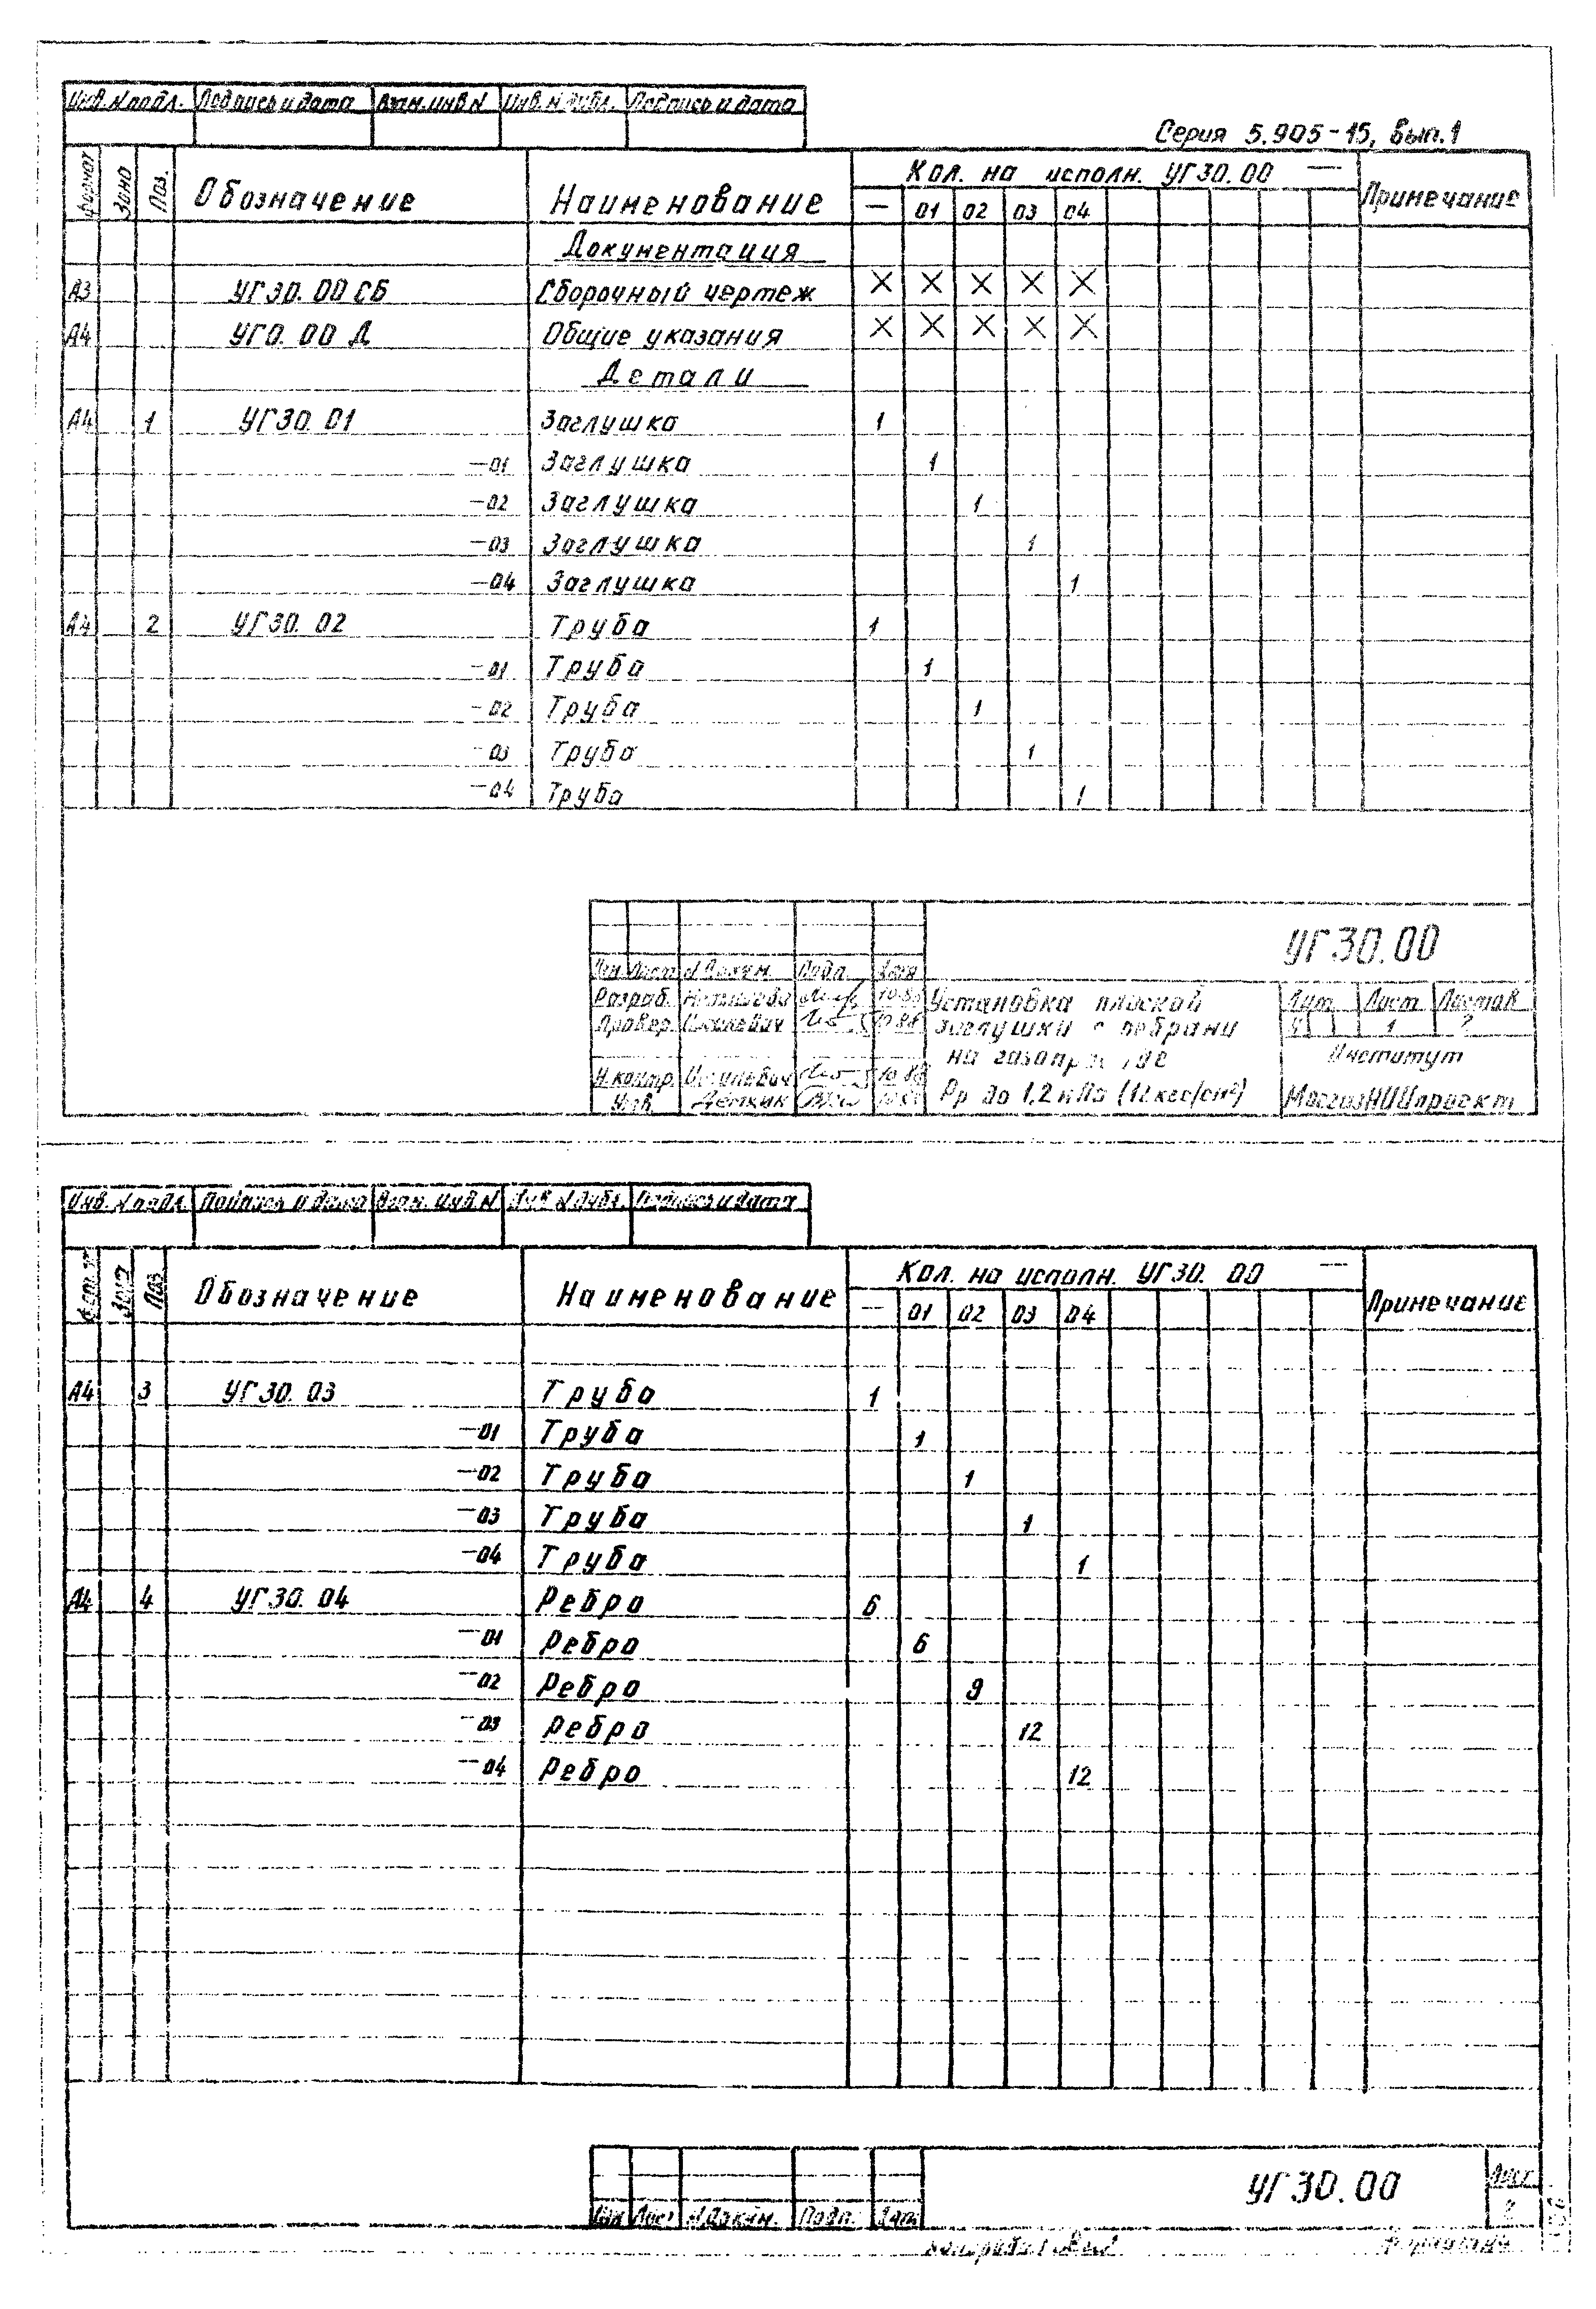 Инв. N подл. Подпись и дата Взам. инв N Инв. N дубл. Подпись и дата
Серия 5.905-15, вып.1
Формат Зона Поз. Обозначение Наименование Кол. на исполн. УГ30.00 — Примечание
— 01 02 03 04
Документация
А3 УГ30.00 СБ Сборочный чертеж X X X X X
А4 УГ0.00 Д Общие указания X X X X X
Детали
А4 1 УГ30.01 Заглушка 1
—01 Заглушка 1
—02 Заглушка 1
—03 Заглушка 1
—04 Заглушка 1
А4 2 УГ30.02 Труба 1
—01 Труба 1
—02 Труба 1
—03 Труба 1
—04 Труба 1
УГ30.00
Изм Лист N Докум. Подп. Дата
Разраб. Установка плоской Лит. Лист Листов
Провер. заглушки с ребрами 1 2
на газопроводе Институт
Н.контр.
Утв. Рр до 1,2 мПа (12 кгс/см²) МосгазНИИпроект
Инв. N подл. Подпись и дата Взам. инв N Инв N дубл. Подпись и дата
Формат Зона Поз Обозначение Наименование Кол. на исполн. УГ30.00 — Примечание
— 01 02 03 04
А4 3 УГ30.03 Труба 1
—01 Труба 1
—02 Труба 1
—03 Труба 1
—04 Труба 1
А4 4 УГ30.04 Ребро 6
—01 Ребро 6
—02 Ребро 9
—03 Ребро 12
—04 Ребро 12
УГ30.00 Лист
2
Изм Лист N Докум. Подп. Дата